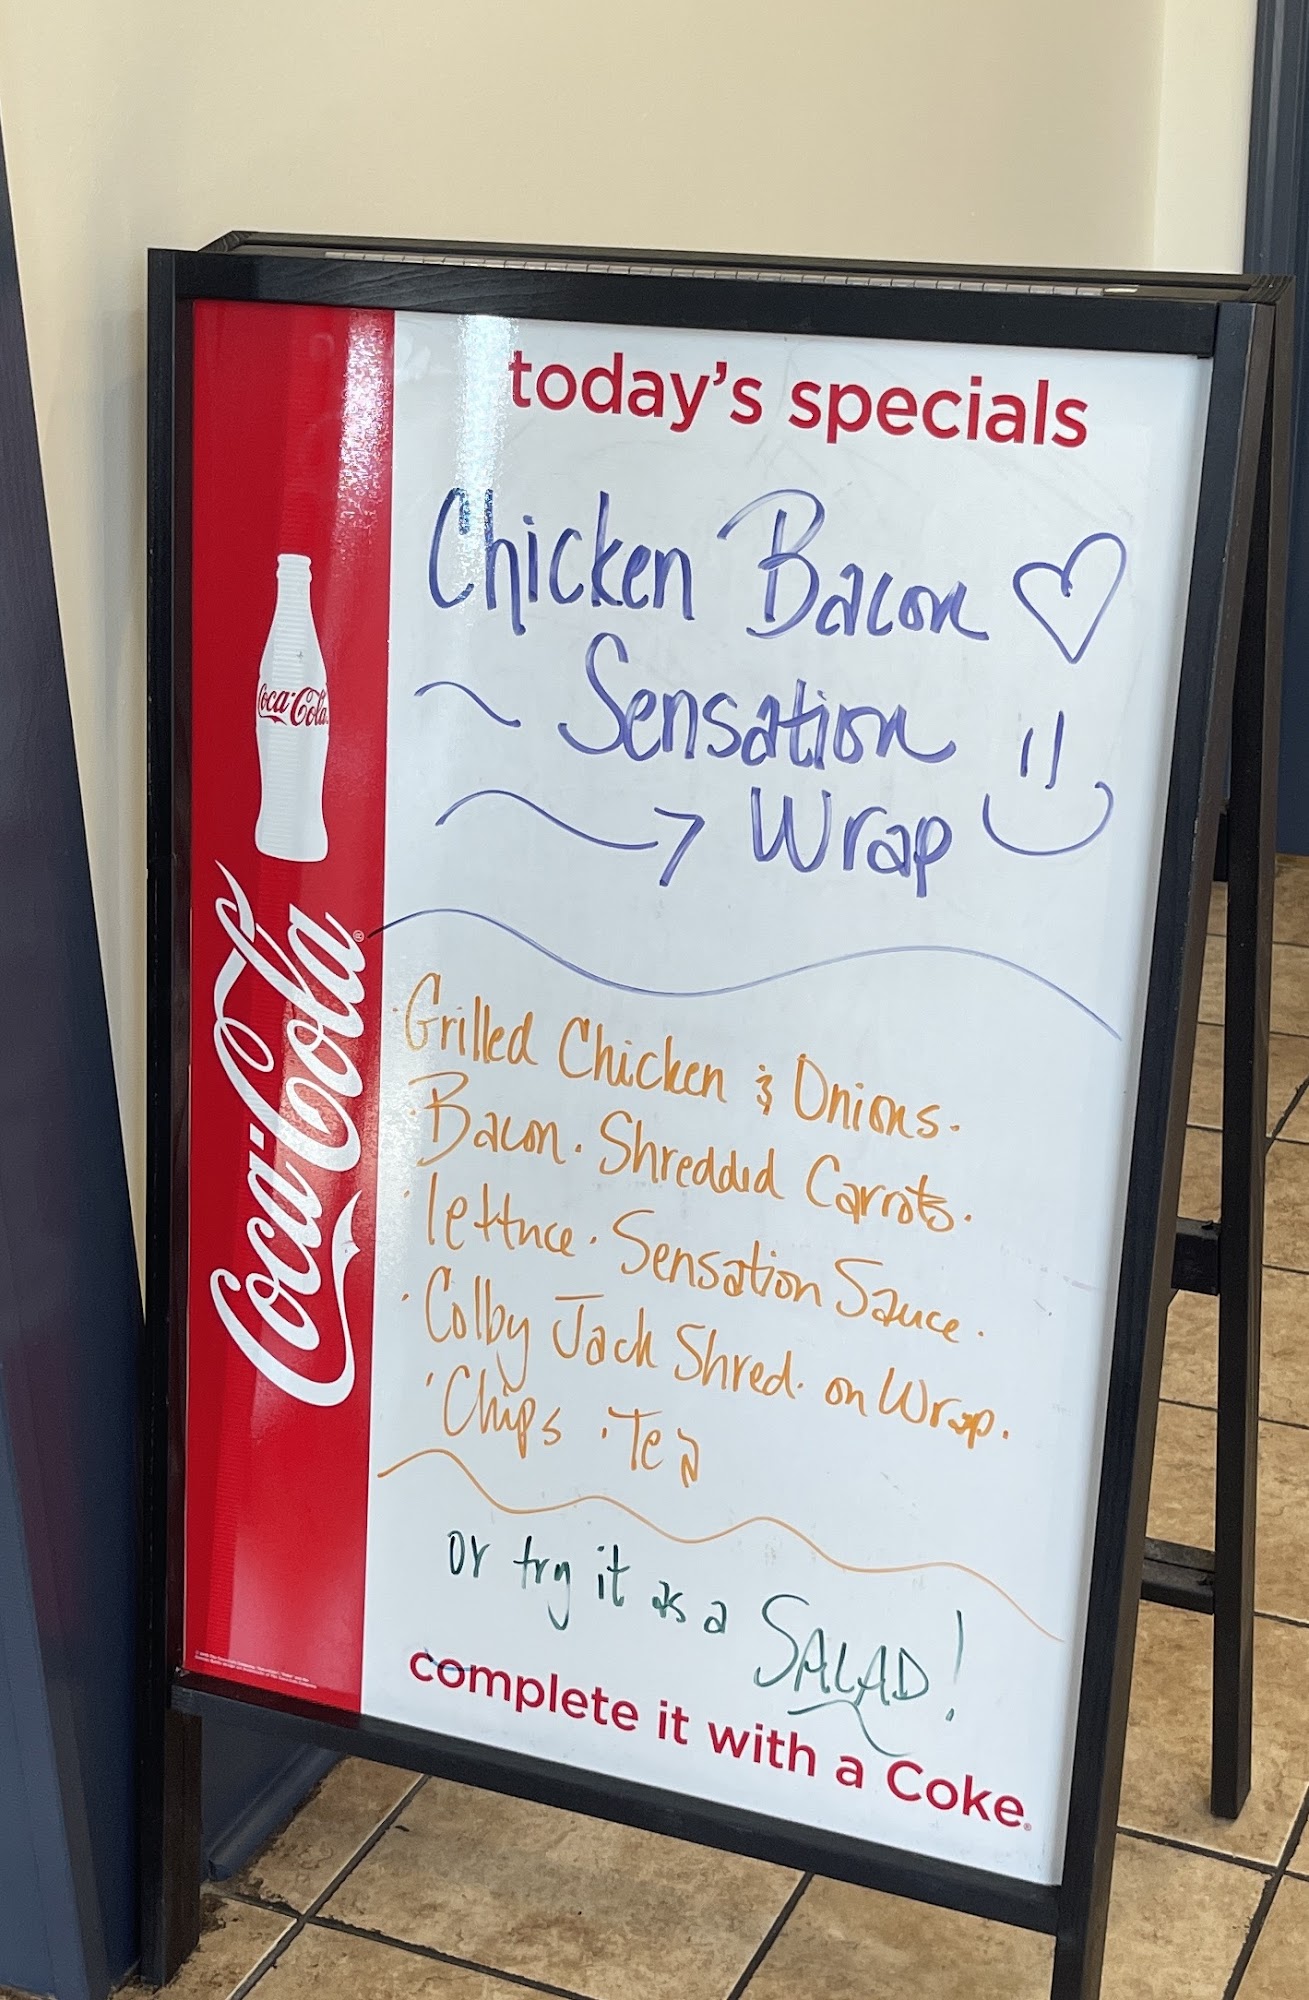 today's specials
Chicken Bacon
~ Sensation
→ Wrap
· Grilled Chicken & Onions.
· Bacon. Shredded Carrots.
· lettuce. Sensation Sauce.
· Colby Jack Shred. on Wrap.
· Chips · Tea
or try it as a SALAD!
complete it with a Coke®
Coca-Cola
Coca-Cola®